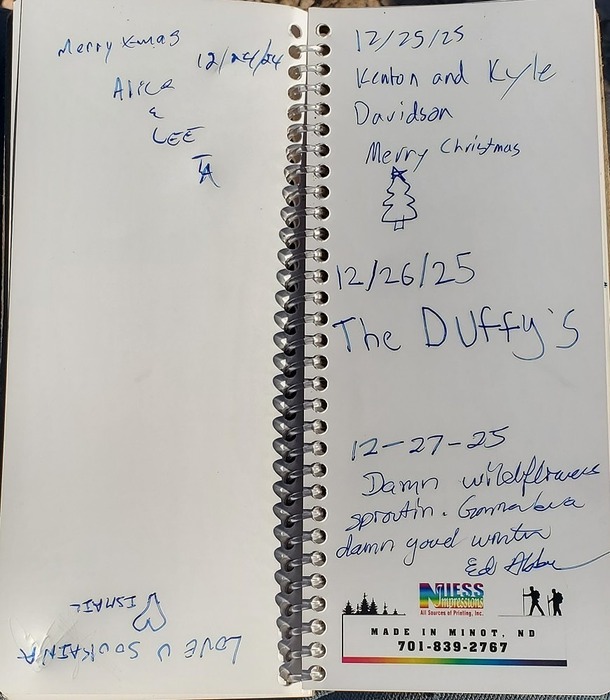 Merry Xmas
12/24/24
Alice
&
LEE
12/25/25
Kenton and Kyle
Davidson
Merry Christmas
12/26/25
The Duffy's
12-27-25
Damn wildflowers
sproutin. Gonna be a
damn good winter
Ed
NIESS
Impressions
All Sources of Printing, Inc.
MADE IN MINOT, ND
701-839-2767
LOVE U SOUKAINA
ISMAIL